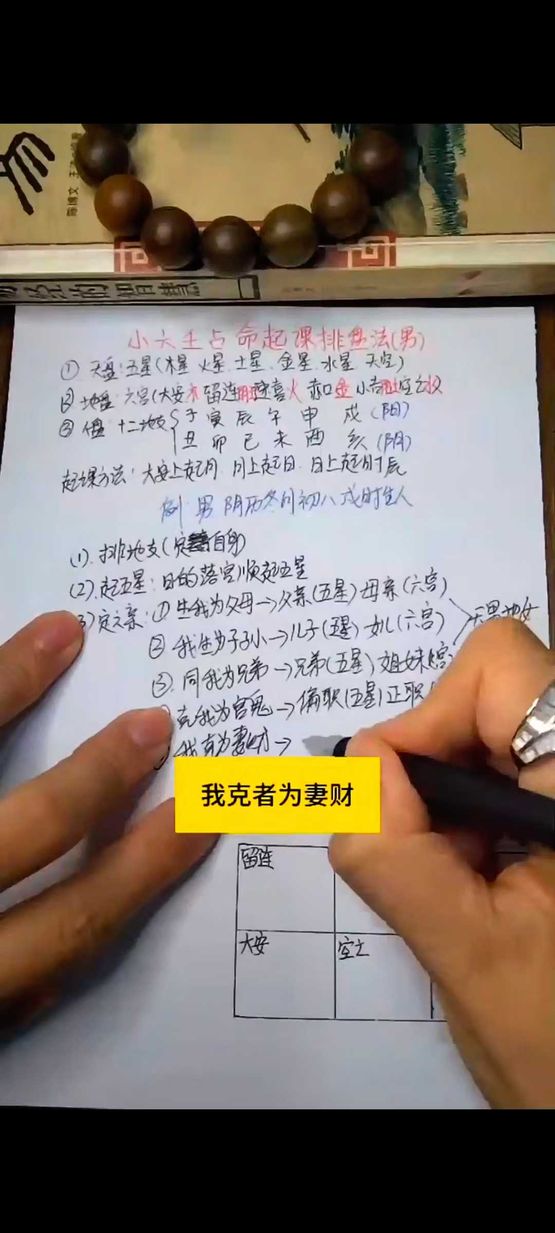 小六壬占命起课排盘法(男)
① 天盘:五星(木星 火星、土星、金星、水星、天空)
② 地盘:六宫(大安木 留连 速喜火 赤口金 小吉 空亡
③ 人盘 十二地支{子 寅 辰 午 申 戌 (阳)
丑 卯 巳 未 酉 亥 (阴)
起课方法:大安上起月 月上起日 日上起时辰
例 男 阴历冬月初八戌时生人
(1). 排地支(定 自身)
(2). 起五星:日的落宫顺起五星
(3) 定六亲:① 生我为父母→父亲(五星)母亲(六宫)
② 我生为子孙→儿子(五星)女儿(六宫)
③. 同我为兄弟→兄弟(五星)姐妹 宫
克我为官鬼→偏职(五星)正职
我克为妻财→
我克者为妻财
留连
大安
空亡